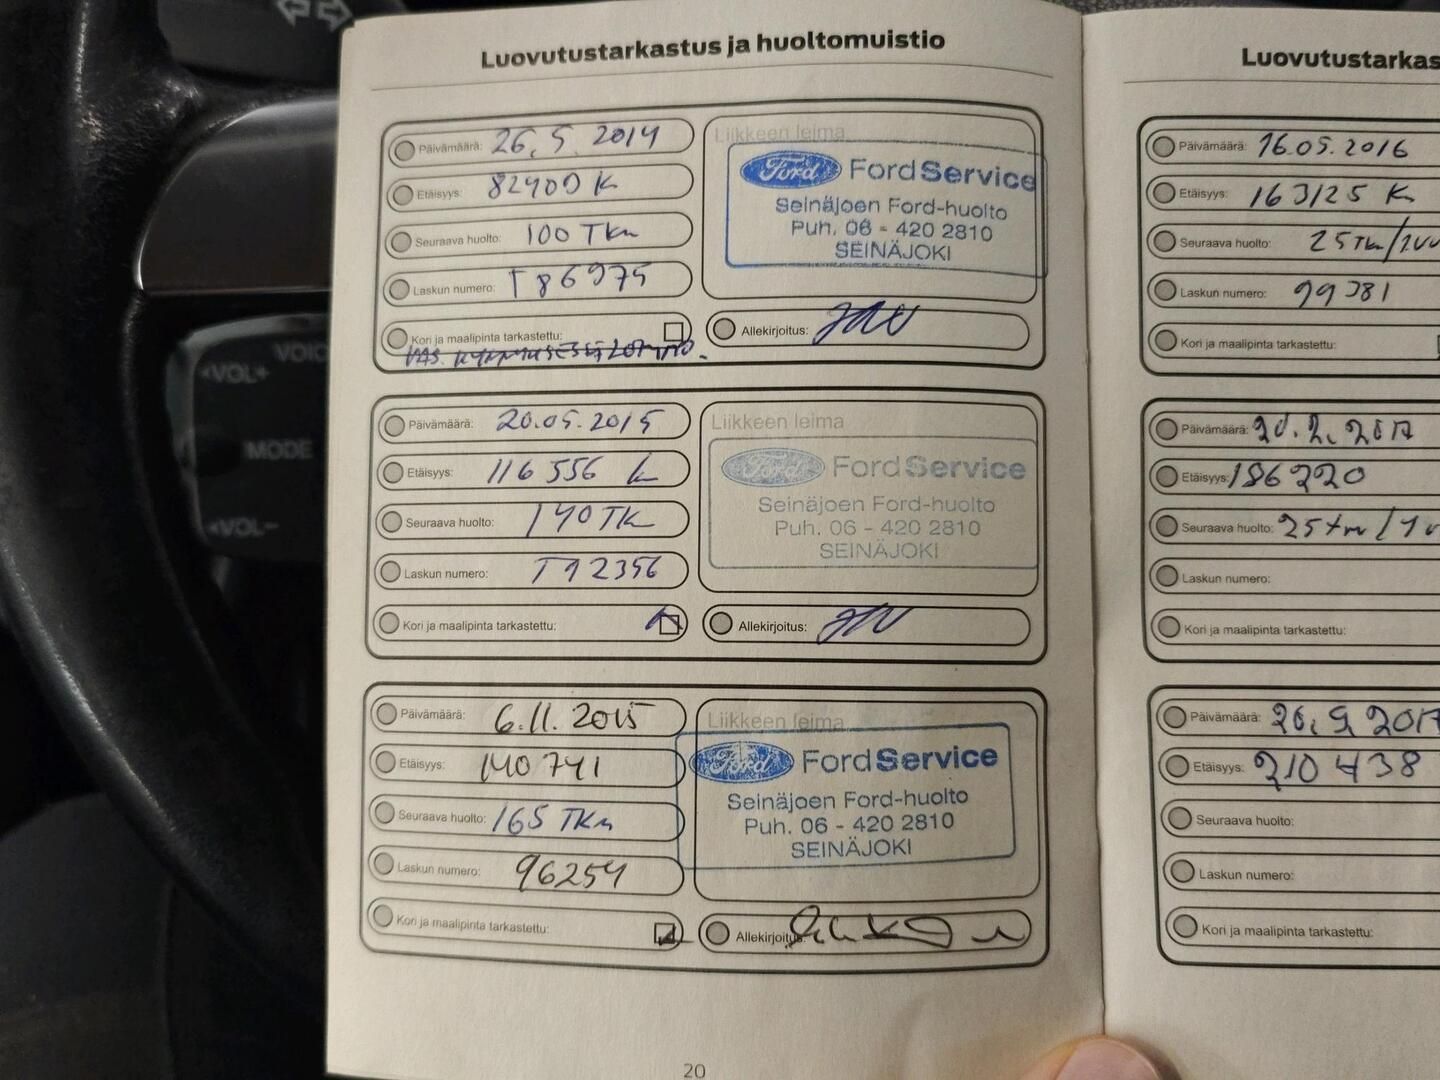 Luovutustarkastus ja huoltomuistio
Päivämäärä: 26.5.2014
Etäisyys: 82400 K
Seuraava huolto: 100 TKm
Laskun numero: T86975
Kori ja maalipinta tarkastettu:
Liikkeen leima
Ford FordService
Seinäjoen Ford-huolto
Puh. 06 - 420 2810
SEINÄJOKI
Allekirjoitus:
Päivämäärä: 20.05.2015
Etäisyys: 116 556 k
Seuraava huolto: 140 TKm
Laskun numero: T92356
Kori ja maalipinta tarkastettu:
Liikkeen leima
Ford FordService
Seinäjoen Ford-huolto
Puh. 06 - 420 2810
SEINÄJOKI
Allekirjoitus:
Päivämäärä: 6.11.2015
Etäisyys: 140 741
Seuraava huolto: 165 TKm
Laskun numero: 96254
Kori ja maalipinta tarkastettu:
Liikkeen leima
Ford FordService
Seinäjoen Ford-huolto
Puh. 06 - 420 2810
SEINÄJOKI
Allekirjoitus:
20
Luovutustarkas
Päivämäärä: 16.05.2016
Etäisyys: 163125 Km
Seuraava huolto: 25 TKm/
Laskun numero: 99381
Kori ja maalipinta tarkastettu:
Päivämäärä: 20.2.2017
Etäisyys: 186220
Seuraava huolto: 25 tkm / 1 v
Laskun numero:
Kori ja maalipinta tarkastettu:
Päivämäärä: 26.9.2017
Etäisyys: 210 438
Seuraava huolto:
Laskun numero:
Kori ja maalipinta tarkastettu:
VOIC
VOL+
MODE
VOL-